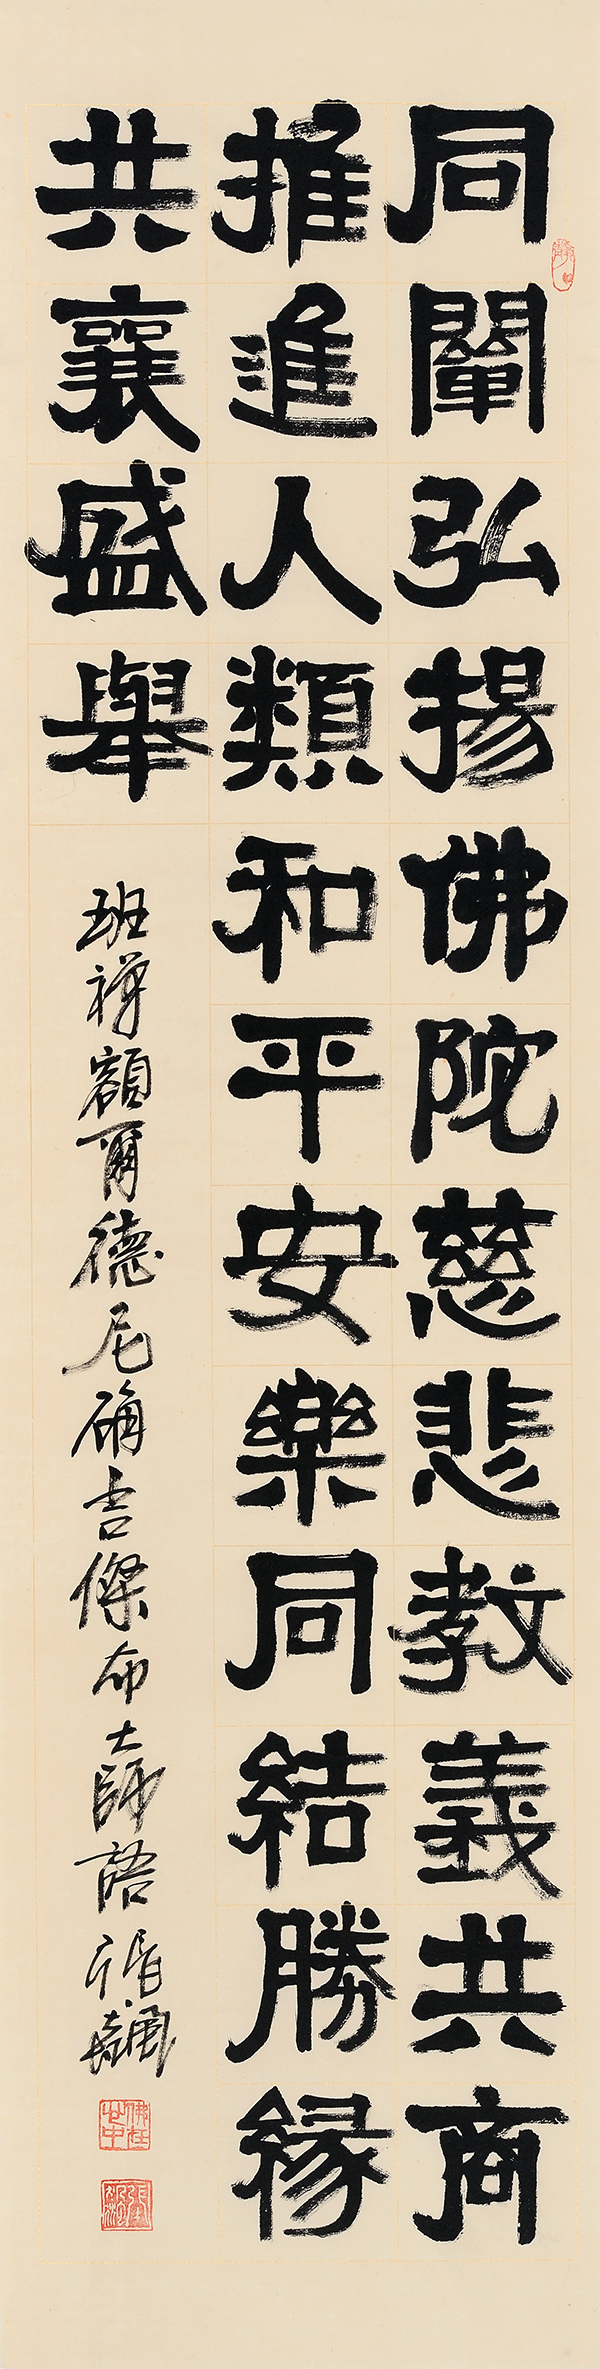 同闡弘揚佛陀慈悲教義共商
推進人類和平安樂同結勝緣
共襄盛舉
班禪額爾德尼確吉傑布大師語 張飆
佛在心中
張飆